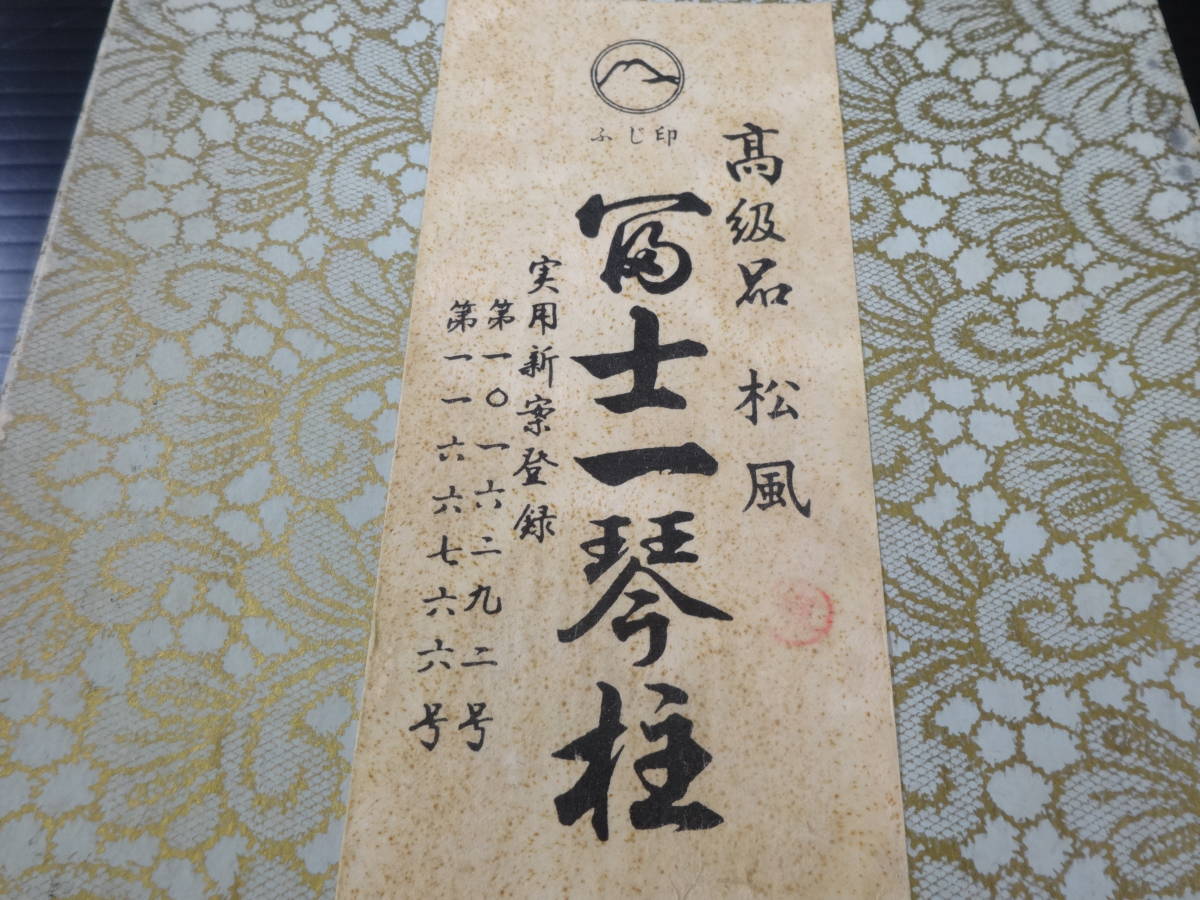 ふじ印
高級品 松風
冨士一琴柱
実用新案登録
第一〇一六二九二号
第一一六六七六六号